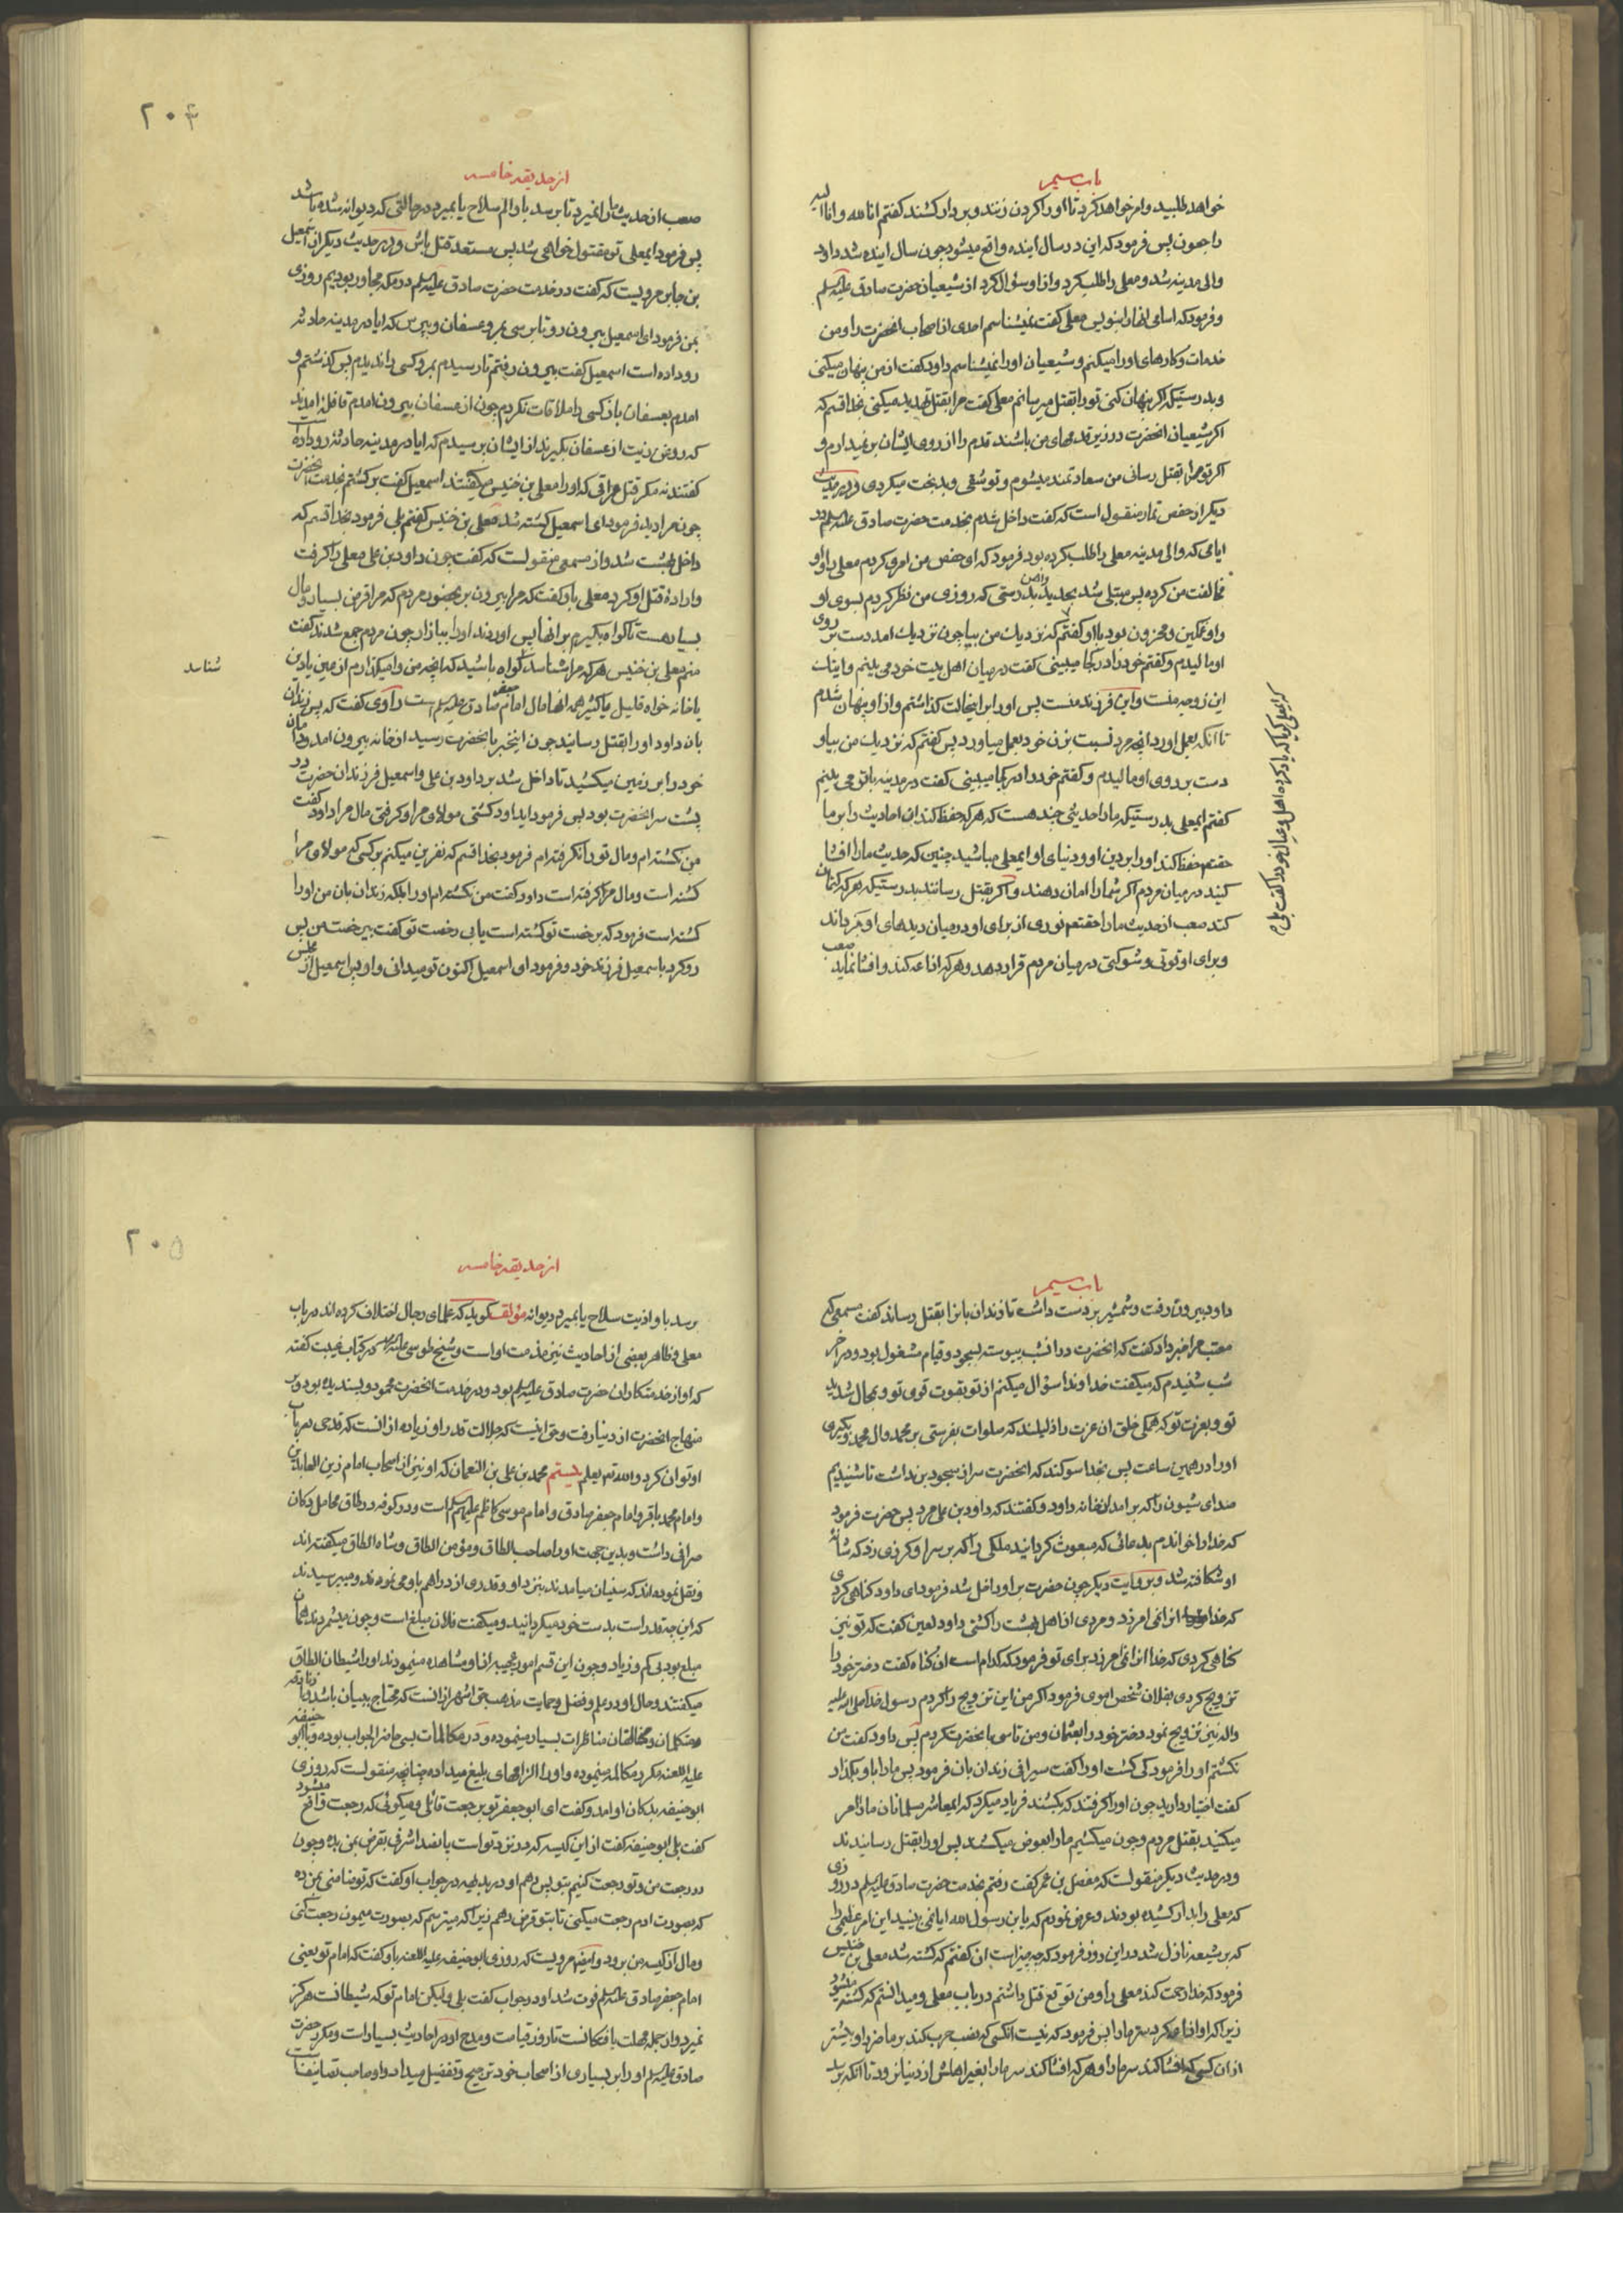 باب سیم
خواهد طلبید و امر خواهد کرد تا او را کردن زنند و بر دار کشند کفتم انا لله و انا الیه
راجعون پس فرمود که این در سال اینده واقع میشود چون سال اینده شد داود
والی مدینه شد و معلی را طلب کرد و از او سؤال کرد از شیعیان حضرت صادق علیه السلم
و فرمود که اسامی انها را بنویس معلی کفت نمیشناسم احدی از اصحاب انحضرت را و من
خدمات و کارهای او را میکنم و شیعیان او را نمیشناسم داود کفت از من پنهان میکنی
و بدرستیکه اکر پنهان کنی تو را بقتل میرسانم معلی کفت مرا بقتل تهدید میکنی بخدا قسم که
اکر شیعیان انحضرت در زیر قدمهای من باشند قدم را از روی ایشان بر نمیدارم و
اکر تو مرا بقتل رسانی من سعادتمند میشوم و تو شقی و بدبخت میکردی و در حدیث
دیکر از حفص تمار منقول است که کفت داخل شدم بخدمت حضرت صادق علیه السلم در
ایامی که والی مدینه معلی را طلب کرده بود فرمود که ای حفص من امری کردم معلی را و او
مخالفت من کرده پس مبتلی شد بحدید بدرستی که روزی من نظر کردم بسوی او
و او غمکین و محزون بود باو کفتم که نزدیک من بیا چون نزدیک امد دست بر روی
او مالیدم و کفتم خود را در کجا میبینی کفت در میان اهل بیت خود می بینم و اینک
این زوجه منست و این فرزند منست پس او را بر اینحالت کذاشتم و از او پنهان شدم
تا انکه بعمل اورد انچه مرد نسبت بزن خود بعمل میاورد پس کفتم که نزدیک من بیا و
دست بر روی او مالیدم و کفتم خود را در کجا میبینی کفت در مدینه باتو می بینم
کفتم ایمعلی بدرستیکه ما را حدیثی چند هست که هر که حفظ کند ان احادیث را بر ما
حقتعم حفظ کند او را بر دین او و دنیای او ایمعلی مباشید چنین که حدیث ما را افشا
کنید در میان مردم اکر شما را امان دهند و اکر بقتل رسانند بدرستیکه هر که کتمان
کند صعب از حدیث ما را حقتعم نوری از برای او در میان دیدهای او کرداند
و برای او قوتی و شوکتی در میان مردم قرار دهد و هر که اذاعه کند و افشا نماید صعب
که ایمعلی کویا که یاد کرده اهل و عیال خود را کفت بلی
۲۰۴
از حدیقه خامسه
صعب از حدیث ما را نمیرد تا برسد باو الم سلاح یا بمیرد در حالتی که دیوانه شده باشد
پس فرمود ایمعلی تو مقتول خواهی شد پس مستعد قتل باش و در حدیث دیکر از اسمعیل
بن جابر مرویست که کفت در خدمت حضرت صادق علیه السلم در مکه مجاور بودیم روزی
بمن فرمود ای اسمعیل بیرون رو تا برسی بمر و عسفان و بپرس که ایا در مدینه حادثه
رو داده است اسمعیل کفت بیرون رفتم تا رسیدم بمر و کسی را ندیدم پس کذشتم و
امدم بعسفان باز کسی را ملاقات نکردم چون از عسفان بیرون امدم قافله امدند
که روغن زیت از عسفان بکیرند از ایشان پرسیدم که ایا در مدینه حادثه روداده است
کفتند نه مکر قتل عراقی که او را معلی بن خنیس میکفتند اسمعیل کفت برکشتم بخدمت انحضرت
چون مرا دید فرمود ای اسمعیل کشته شد معلی بن خنیس کفتم بلی فرمود بخدا قسم که
داخل بهشت شد و از مسمعی منقولست که کفت چون داود بن علی معلی را کرفت
و اراده قتل او کرد معلی باو کفت که مرا بیرون بر بحضور مردم که مرا قرض بسیار و مال
بسیار هست تا کواه بکیرم بر انها پس اوردند او را ببازار چون مردم جمع شدند کفت
منم معلی بن خنیس هر که مرا شناسد کواه باشید که انچه من وامیکذارم از عین یا دین
شناسد
یا خانه خواه قلیل یا کثیر همه انها مال امام جعفر صادق علیه السلم است راوی کفت که پس زندان
بان داود او را بقتل رسانید چون اینخبر بانحضرت رسید از خانه بیرون امد و دامان
خود را بر زمین میکشید تا داخل شد بر داود بن علی و اسمعیل فرزندان حضرت در
پشت سر انحضرت بود پس فرمود ایداود کشتی مولای مرا و کرفتی مال مرا داود کفت
من نکشته ام و مال تو را نکرفته ام فرمود بخدا قسم که نفرین میکنم بر کسی که مولای مرا
کشته است و مال مرا کرفته است داود کفت من نکشته ام او را بلکه زندان بان من او را
کشته است فرمود که برخصت تو کشته است یا بی رخصت تو کفت بی رخصت من پس
رو کرد باسمعیل فرزند خود و فرمود ای اسمعیل اکنون تو میدانی و او پس اسمعیل از مجلس
باب سیم
داود بیرون رفت و شمشیر بر دست داشت تا زندان بانرا بقتل رساند کفت مسمعی که
معتب مرا خبر داد کفت که انحضرت در انشب پیوسته بسجود و قیام مشغول بود و در اخر
شب شنیدم که میکفت خداوندا سؤال میکنم از تو بقوت قوی تو و بمحال شدید
تو و بعزت تو که همکی خلق ان عزت را ذلیلند که صلوات بفرستی بر محمد و ال محمد و بکیری
او را در همین ساعت پس بخدا سوکند که انحضرت سر از سجود بر نداشت تا شنیدیم
صدای شیون را که برامد از خانه داود و کفتند که داود بن علی مرد پس حضرت فرمود
که خدا را خواندم بدعائی که مبعوث کردانید ملکی را که بر سر او کرزی زد که مثانه
او شکافته شد و بروایت دیکر چون حضرت بر او داخل شد فرمود ای داود کناهی کردی
که خدا انرا نمی امرزد و مردی از اهل بهشت را کشتی داود لعین کفت که تو نیز
کناهی کردی که خدا انرا نمی امرزد برای تو فرمود که کدام است ان کناه کفت دختر خود را
تزویج کردی بفلان شخص اموی فرمود اکر من این تزویج را کردم رسول خدا صلی الله علیه
واله نیز تزویج نمود دختر خود را بعثمان و من تاسی بانحضرت کردم پس داود کفت من
نکشتم او را فرمود کی کشت او را کفت سیرافی زندان بان فرمود پس ما را باو بکذار
کفت اختیار دارید چون او را کرفتند که بکشند فریاد میکرد که ایمعاشر مسلمانان ما را امر
میکنید بقتل مردم و چون میکشیم ما را بعوض میکشند پس او را بقتل رسانیدند
و در حدیث دیکر منقولست که مفضل بن عمر کفت رفتم بخدمت حضرت صادق علیه السلم در روزی
که معلی را بدار کشیده بودند و عرض نمودم که یابن رسول الله ایا نمی بینید این امر عظیمی را
که بر شیعه نازل شد در این روز فرمود که چه چیز است ان کفتم که کشته شد معلی بن خنیس
فرمود که خدا رحمت کند معلی را و من توقع قتل داشتم در باب معلی و میدانستم که کشته میشود
زیرا که او اذاعه کرد سر ما را پس فرمود که نیست انکسی که نصب حرب کند بر ما ضرر او بیشتر
از ان کسی که افشا کند سر ما را و هر که افشا کند سر ما را بغیر اهلش از دنیا نرود تا انکه برسد
۲۰۵
از حدیقه خامسه
برسد باو اذیت سلاح یا بمیرد دیوانه مؤلف کوید که علمای رجال اختلاف کرده اند در باب
معلی و ظاهر بعضی از احادیث نیز مذمت او است و شیخ طوسی علیه الرحمه در کتاب غیبت کفته
که او از خدمتکاران حضرت صادق علیه السلم بود و در خدمت انحضرت محمود و پسندیده بود و بر
منهاج انحضرت از دنیا رفت و حق اینست که جلالت قدر او زیاده از انست که قدحی در باب
او توان کرد والله تعم یعلم بیستم محمد بن علی بن النعمان که او نیز از اصحاب امام زین العابدین
و امام محمد باقر و امام جعفر صادق و امام موسی کاظم علیهم السلم است و در کوفه در طاق محامل دکان
صرافی داشت و بدین جهت او را صاحب الطاق و مؤمن الطاق و شاه الطاق میکفته اند
و نقل نموده اند که سنیان میامدند بنزد او و قدری از دراهم باو می نمودند و میپرسیدند
که این چقدر است بدست خود میکردانید و میکفت فلان مبلغ است و چون میشمردند همان
مبلغ بود بی کم و زیاد و چون این قسم امور عجیبه از او مشاهده مینمودند او را شیطان الطاق
میکفتند و حال او در علم و فضل و حمایت مذهب حق اشهر از انست که محتاج ببیان باشد و با زنادقه
و متکلمان و مخالفان مناظرات بسیار مینموده و در مکالمات بسی حاضر الجواب بوده و با ابو حنیفه
علیه اللعنه مکرر مکالمه مینموده و او را الزامهای بلیغ میداده چنانچه منقولست که روزی
ابوحنیفه بدکان او امد و کفت ای ابوجعفر تو برجعت قائلی و میکوئی که رجعت واقع میشود
کفت بلی ابوحنیفه کفت از این کیسه که در نزد تو است پانصد اشرفی بقرض بمن بده و چون
در رجعت من و تو رجعت کنیم بتو پس دهم او در بدیهه در جواب او کفت که تو ضامنی بمن ده
که بصورت ادم رجعت میکنی تا بتو قرض دهم زیرا که میترسم که بصورت میمون رجعت کنی
و مال از کیسه من برود و ایضا مرویست که روزی ابوحنیفه علیه اللعنه باو کفت که امام تو یعنی
امام جعفر صادق علیه السلم فوت شد او در جواب کفت بلی ولیکن امام تو که شیطانست هرکز
نمیرد و از جمله مهلت یافتکانست تا روز قیامت و مدح او در احادیث بسیار است و مکرر حضرت
صادق علیه السلم او را بر بسیاری از اصحاب خود ترجیح و تفضیل میداد و او صاحب تصانیف است